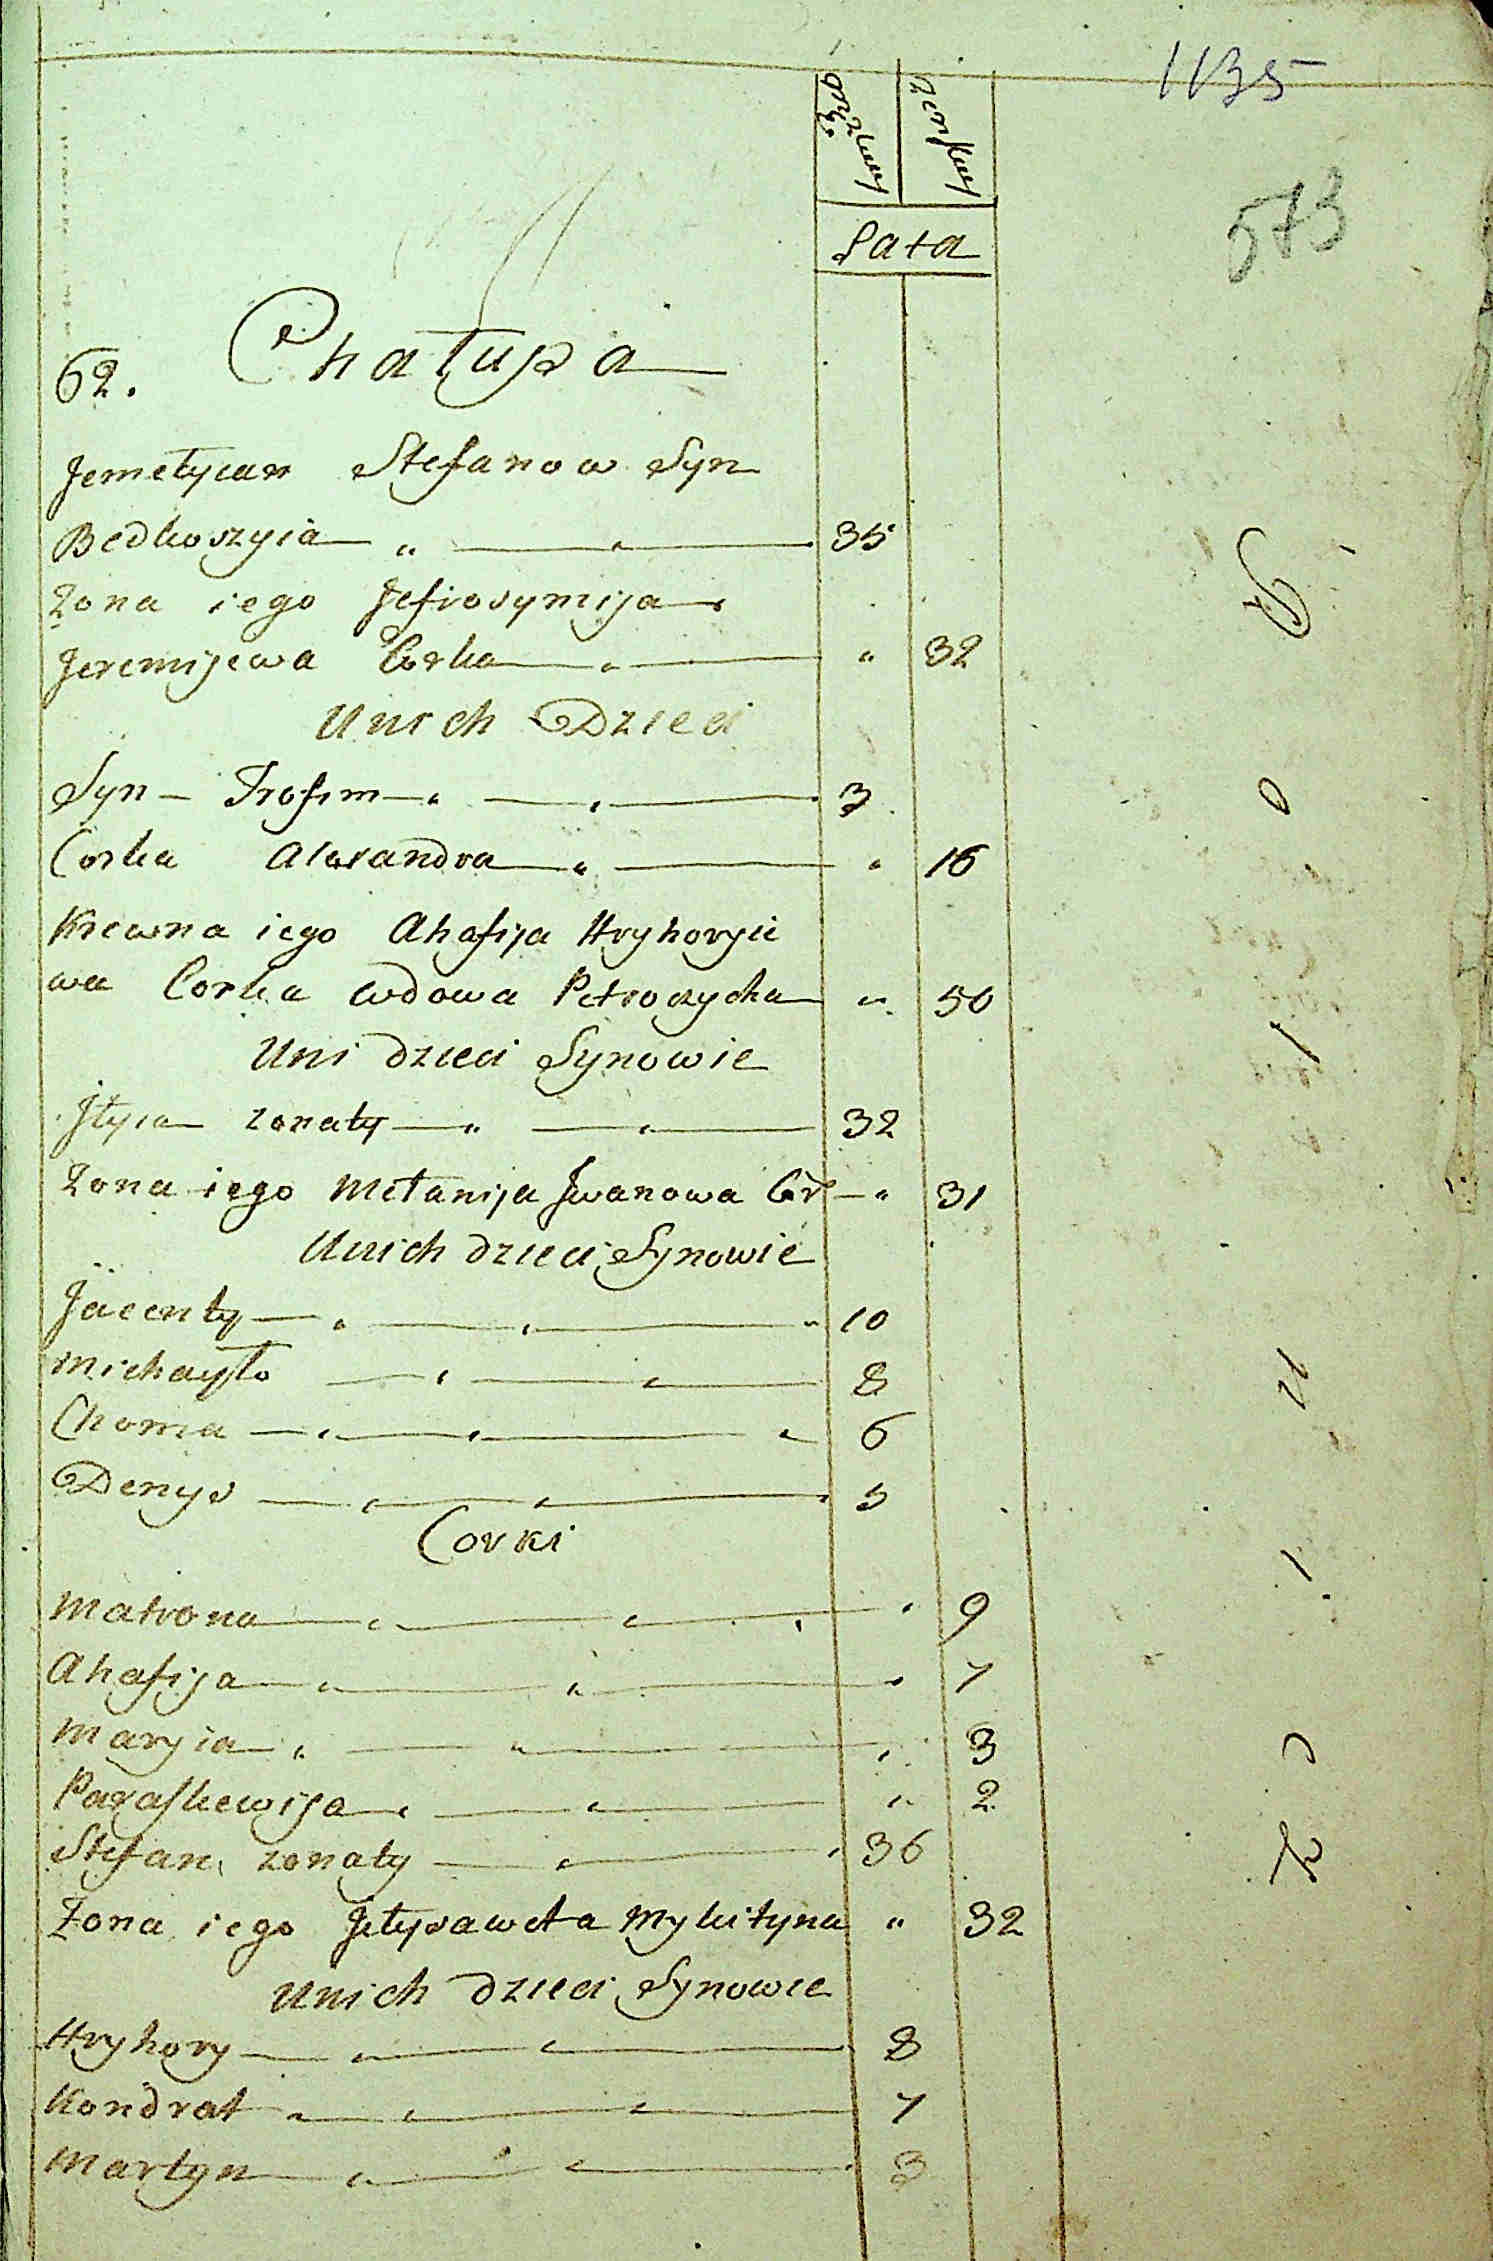 1135
573
męzkiey żenskiey
Lata
62. Chałupa
Jemełyian Stefanow Syn
Bedkoszyia " — " — 35
Żona iego Jefrosymija
Jeremijewa Corka — " — " 32
Unich Dzieci
Syn — Trofim — " — " — 3
Corka Alexandra — " — " 16
Krewna iego Ahafija Hryhoryie
wa Corka wdowa Petroczycha — " 50
Uni dzieci Synowie
Jłyia zonaty — " — " — 32
Zona iego Mełanija Jwanowa Cór — " 31
Unich dzieci Synowie
Jacenty — " — " — " 10
Michayło — " — " — 8
Choma — " — " — " 6
Denys — " — " — 5
Corki
Matrona — " — " — " 9
Ahafija — " — " — " 7
Maryia — " — " — " 3
Paraskewija — " — " — " 2
Stefan zonaty — " — 36
Żona iego Jełysaweta Mykityna " 32
Unich dzieci Synowie
Hryhory — " — " — 8
Kondrat — " — " — " 7
Martyn — " — " — 3